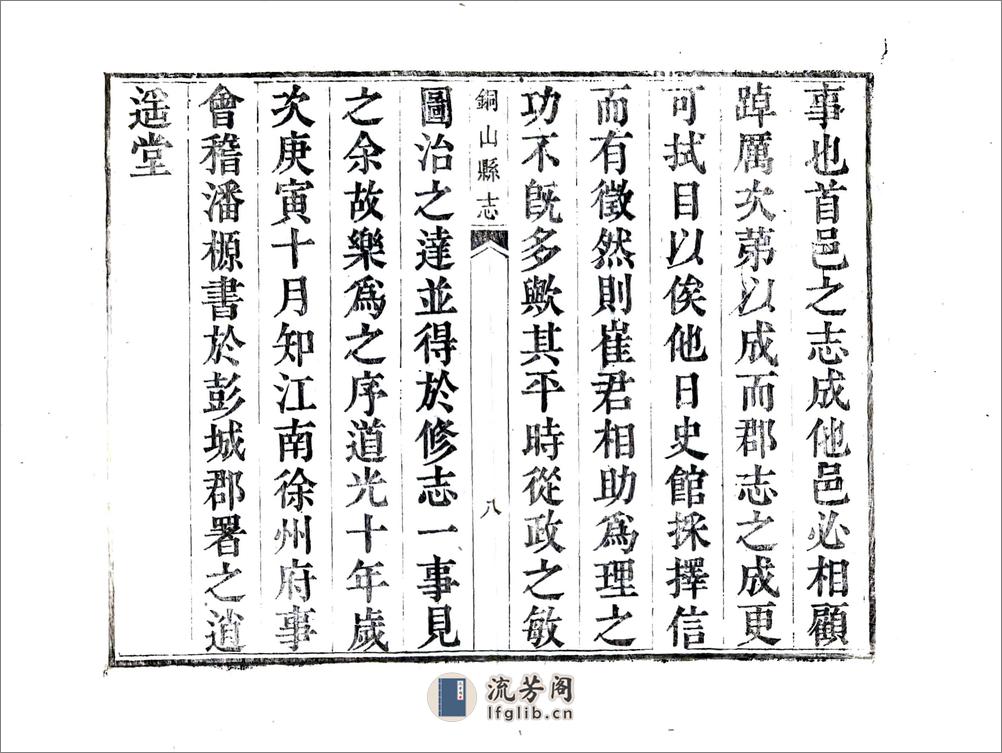 事也首邑之志成他邑必相顧
踔厲次苐以成而郡志之成更
可拭目以俟他日史館採擇信
而有徵然則崔君相助爲理之
功不旣多歟其平時從政之敏
銅山縣志
八
圖治之達並得於修志一事見
之余故樂爲之序道光十年歲
次庚寅十月知江南徐州府事
會稽潘榞書於彭城郡署之逍
遥堂
流芳阁
lfglib.cn